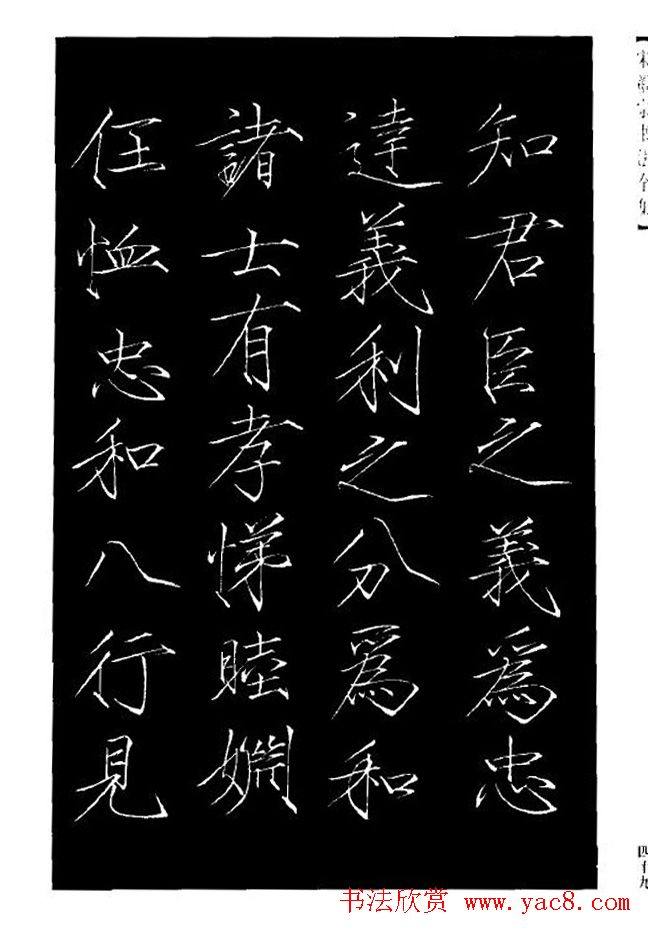 知君臣之義爲忠
達義利之分爲和
諸士有孝悌睦婣
任恤忠和八行見
书法欣赏 www.yac8.com
四十九